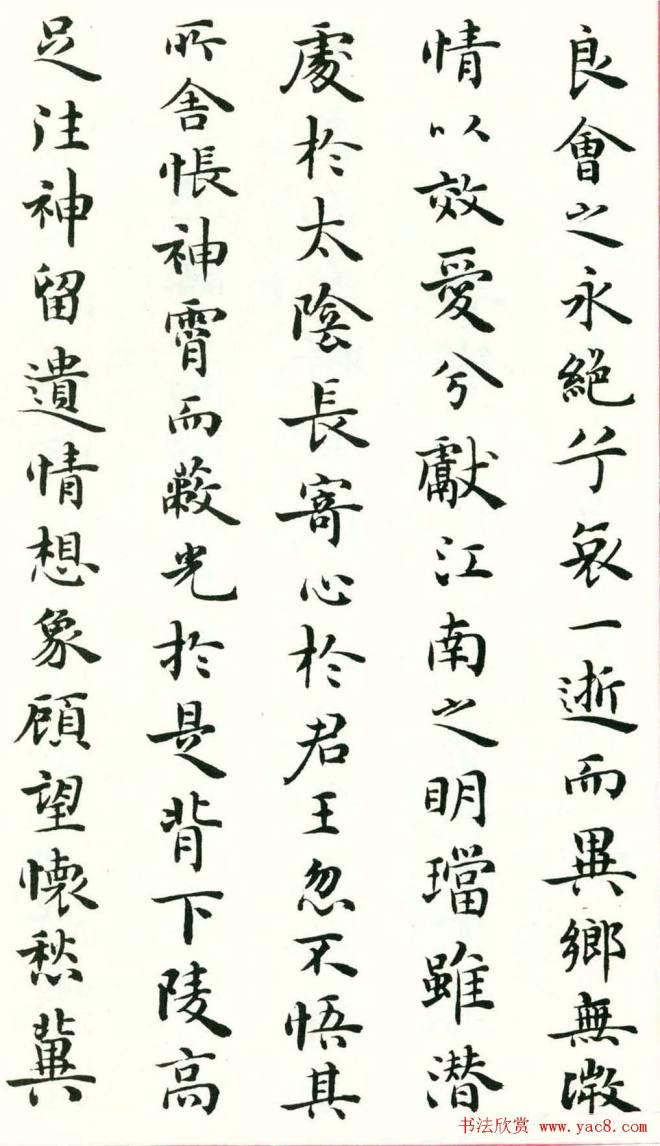 良會之永絕兮哀一逝而異鄉無微
情以效愛兮獻江南之明璫雖潛
處於太陰長寄心於君王忽不悟其
所舍悵神霄而蔽光於是背下陵高
足往神留遺情想象顧望懷愁冀
书法欣赏 www.yac8.com